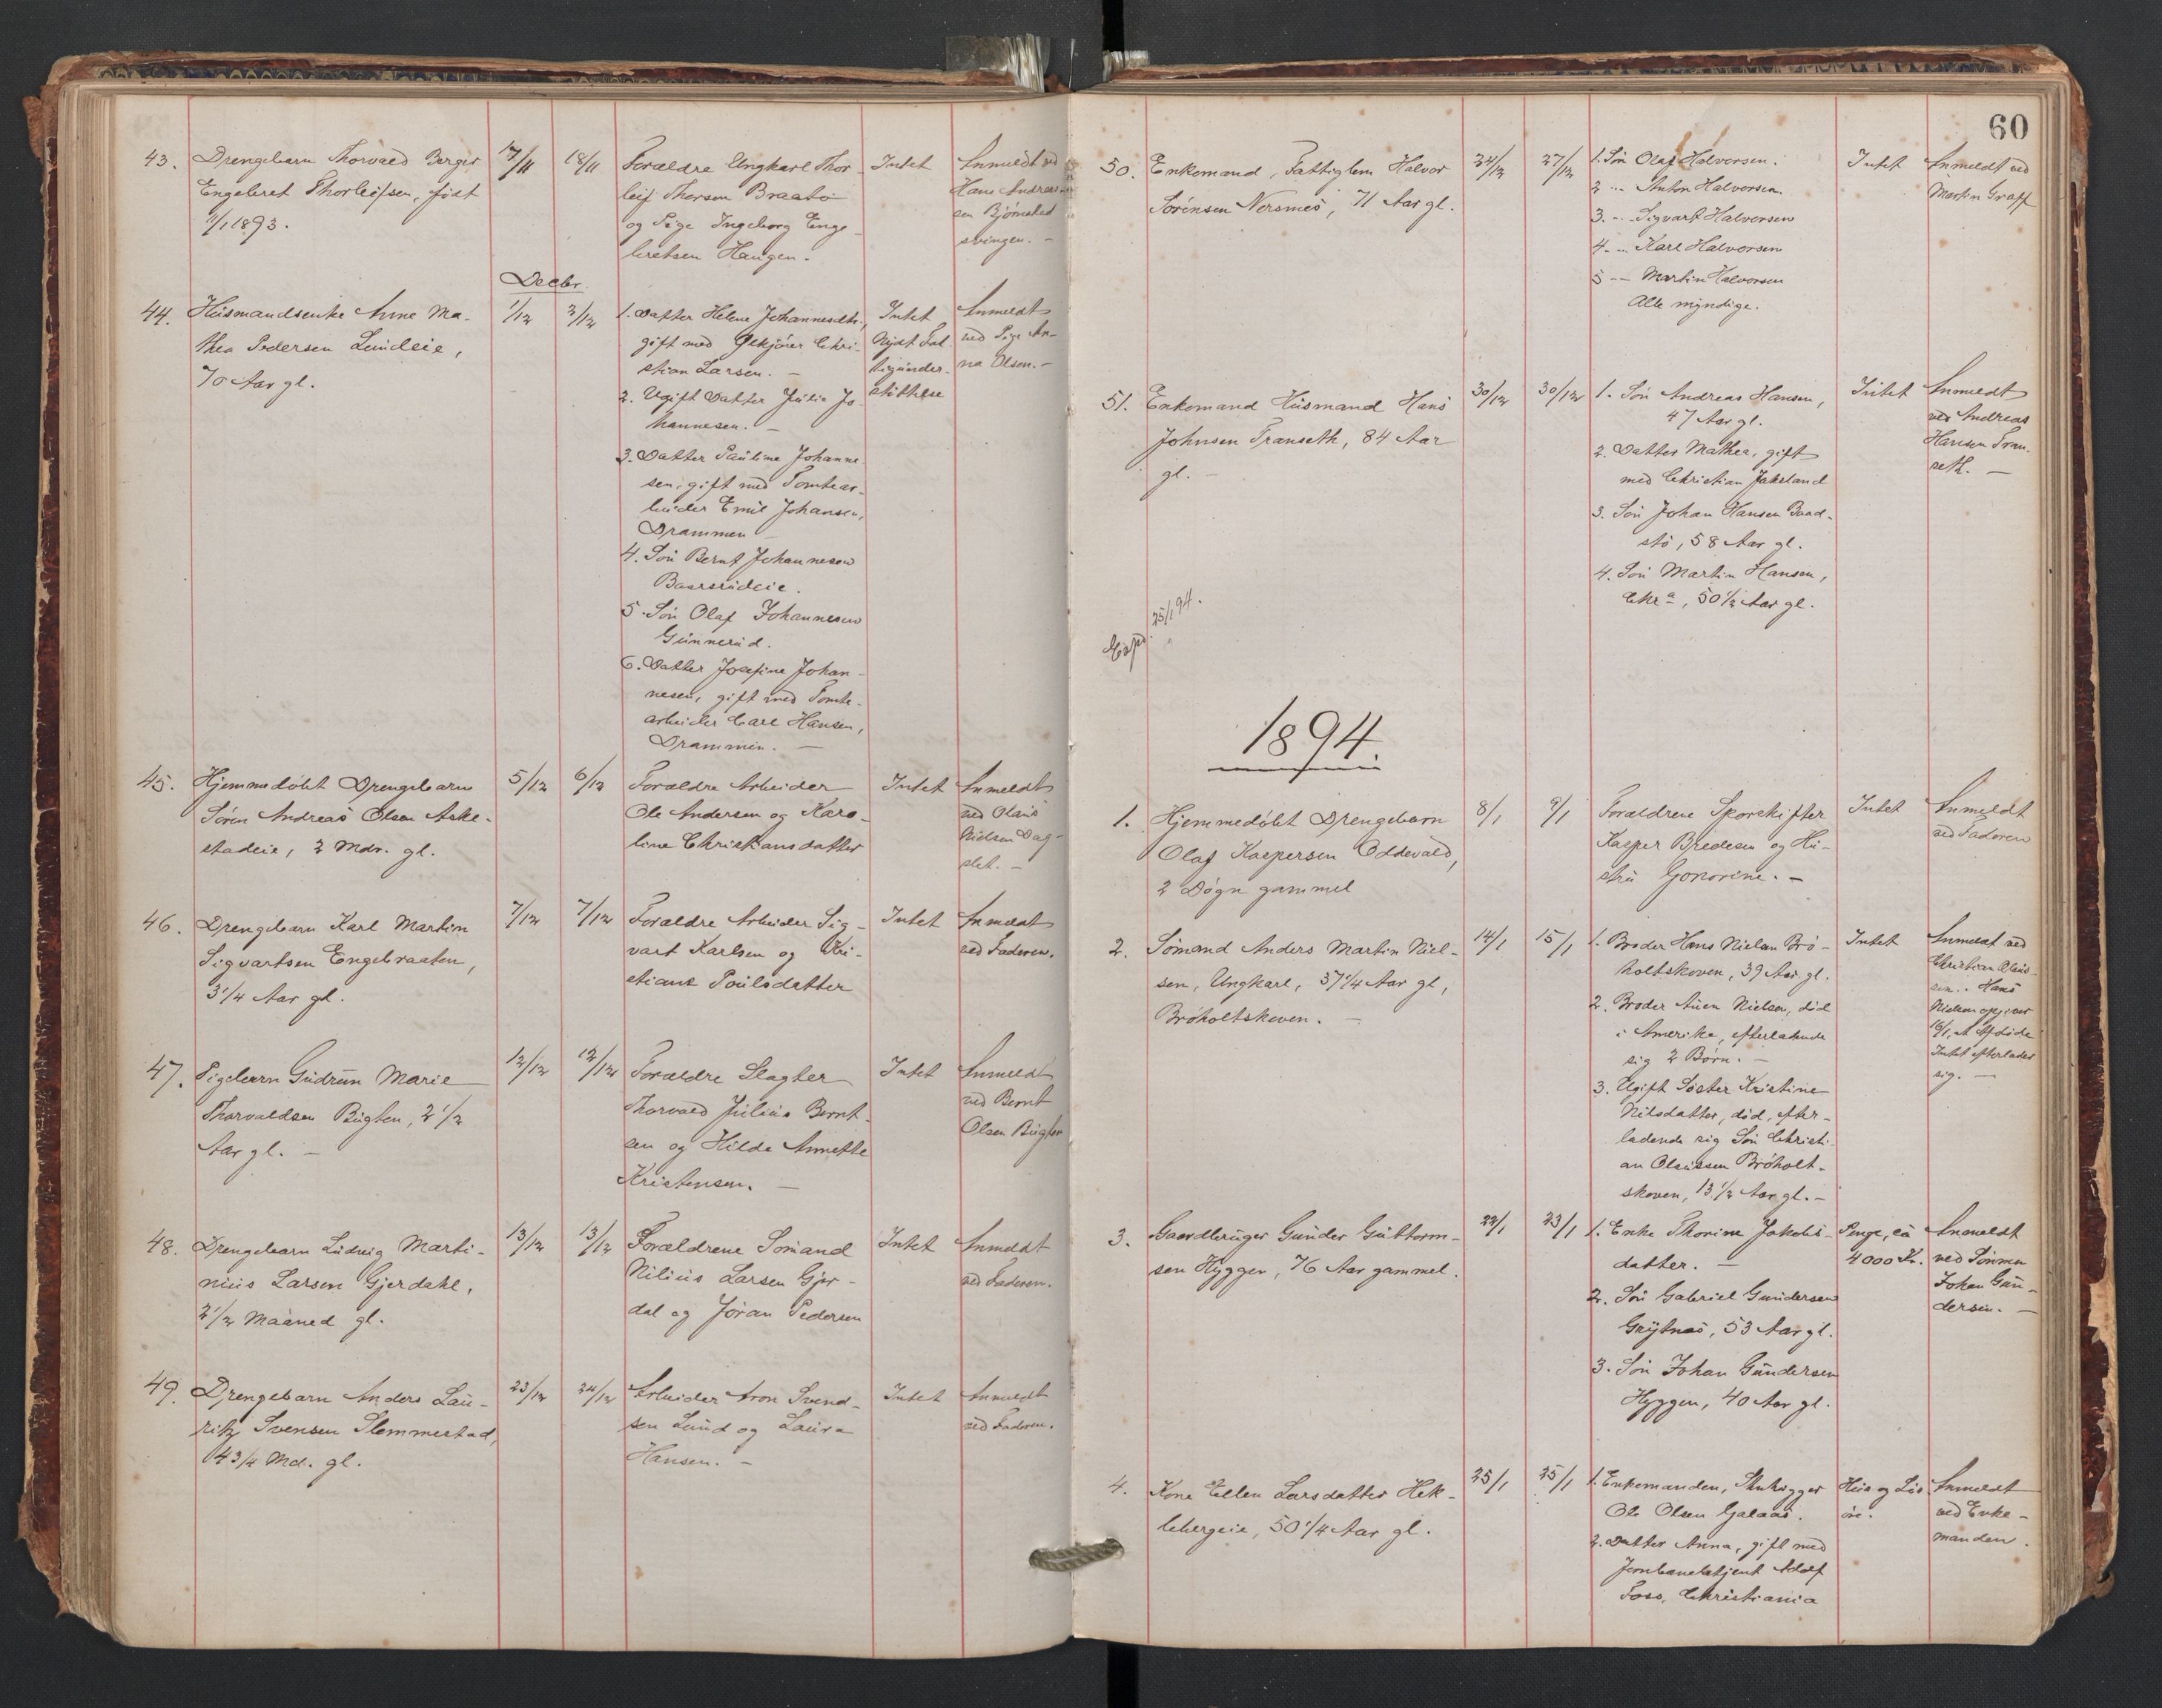 43. Drengebarn Thorvald Berger
Engebret Thorleifsen, født
11/1 1893.
17/11
18/11
Forældre Ungkarl Thor-
leif Thorsen Braatø
og Pige Ingeborg Enge-
bretsen Haugen.
Intet
Anmeldt ved
Hans Andrea-
sen Bjørnstad
svingen. -
Decbr.
44. Husmandsenke Anne Ma-
thea Pedersen Lundeie,
70 Aar gl.
1/12
2/12
1. Datter Helene Johannesdtr.,
gift med Christi-
stian Larsen. -
2. Ugift Datter Julie Jo-
hannesen. -
3. Datter Pauline Johanne-
sen, gift med Tomtear-
beider Emil Johansen,
Drammen
4. Søn Bernt Johannesen
Baarsrudeie.
5. Søn Olaf Johannesen
Gunnerud.
6. Datter Josefine Johan-
nesen, gift med Tomte-
arbeider Carl Hansen,
Drammen. -
Intet
Nydt Fat-
tigunder-
støttelse
Anmeldt
ved Pige An-
na Olsen. -
45. Hjemmedøbt Drengebarn
Søren Andreas Olsen Aske-
stadeie, 2 Mdr. gl.
5/12
6/12
Forældre Arbeider
Ole Andersen og Karo-
line Christiansdatter
Intet
Anmeldt
ved Olaus
Nielsen Dag-
slet. -
46. Drengebarn Karl Martin
Sigvartsen Engebraaten,
3 1/4 Aar gl.
7/12
7/12
Forældre Arbeider Sig-
vart Karlsen og Kri-
stiane Poulsdatter
Intet
Anmeldt
ved Faderen.
47. Pigebarn Gudrun Marie
Thorvaldsen Bugten, 2 1/2
Aar gl. -
12/12
12/12
Forældre Slagter
Thorvald Julius Bernt-
sen og Hilda Annette
Kristensen. -
Intet
Anmeldt
ved Bernt
Olsen Bugten
48. Drengebarn Ludvig Marti-
nius Larsen Gjerdahl,
2 1/2 Maaned gl.
13/12
13/12
Forældrene Sømand
Nilius Larsen Gjer-
dal og Jøran Pedersen
Intet
Anmeldt
ved Faderen.
49. Drengebarn Anders Lau-
ritz Svensen Slemmestad,
4 3/4 Md. gl.
23/12
24/12
Arbeider Aron Svend-
sen Lund og Laura
Hansen. -
Intet
Anmeldt
ved Faderen.
60
50. Enkemand, Fattiglem Halvor
Sørensen Nersnes, 71 Aar gl.
24/12
27/12
1. Søn Olaf Halvorsen.
2 -- Anton Halvorsen
3. -- Sigvart Halvorsen
4. -- Karl Halvorsen
5 -- Martin Halvorsen
Alle myndige.
Intet
Anmeldt ved
Martin Graff
51. Enkemand Husmand Hans
Johnsen Transeth, 84 Aar
gl. -
30/12
30/12
1. Søn Andreas Hansen,
47 Aar gl.
2. Datter Mathea, gift
med Christian Jakslund
3. Søn Johan Hansen Baad-
stø, 58 Aar gl.
4. Søn Martin Hansen,
Chra, 50 1/2 Aar gl.
Intet
Anmeldt
ved Andreas
Hansen Tran-
seth. -
Exped. 25/1 94.
1894.
1. Hjemmedøbt Drengebarn
Olaf Kaspersen Oddevald,
2 Døgn gammel
8/1
9/1
Forældrene Sporskifter
Kasper Bredesen og Hu-
stru Gonorine. -
Intet
Anmeldt
ved Faderen
2. Sømand Anders Martin Niel-
sen, Ungkarl, 37 1/4 Aar gl,
Brøholtskoven. -
14/1
15/1
1. Broder Hans Nielsen Brø-
holtskoven, 39 Aar gl.
2. Broder Auen Nielsen, død
i Amerika, efterladende
sig 2 Børn. -
3. Ugift Søster Kristine
Nilsdatter, død, efter-
ladende sig Søn Christi-
an Olaussen Brøholt-
skoven, 13 1/2 Aar gl. -
Intet
Anmeldt ved
Christian Olaus-
sen. - Hans
Nielsen opgiver
16/1, at Afdøde
Intet efterlader
sig. -
3. Gaardbruger Gunder Guttorm-
sen Hyggen, 76 Aar gammel.
22/1
23/1
1. Enke Thorine Jakobs-
datter. -
2. Søn Gabriel Gundersen
Grytnes, 53 Aar gl.
3. Søn Johan Gundersen
Hyggen, 40 Aar gl.
Penge, ca
4000 Kr.
Anmeldt
ved Sønnen
Johan Gun-
dersen. -
4. Kone Ellen Larsdatter Hek-
lebergeie, 50 1/4 Aar gl.
25/1
25/1
1. Enkemanden, Stenhugger
Ole Olsen Galaas.
2. Datter Anna, gift med
Jernbanebetjent Adolf
Foss, Christiania
Huse og Løs-
øre.
Anmeldt
ved Enke-
manden.